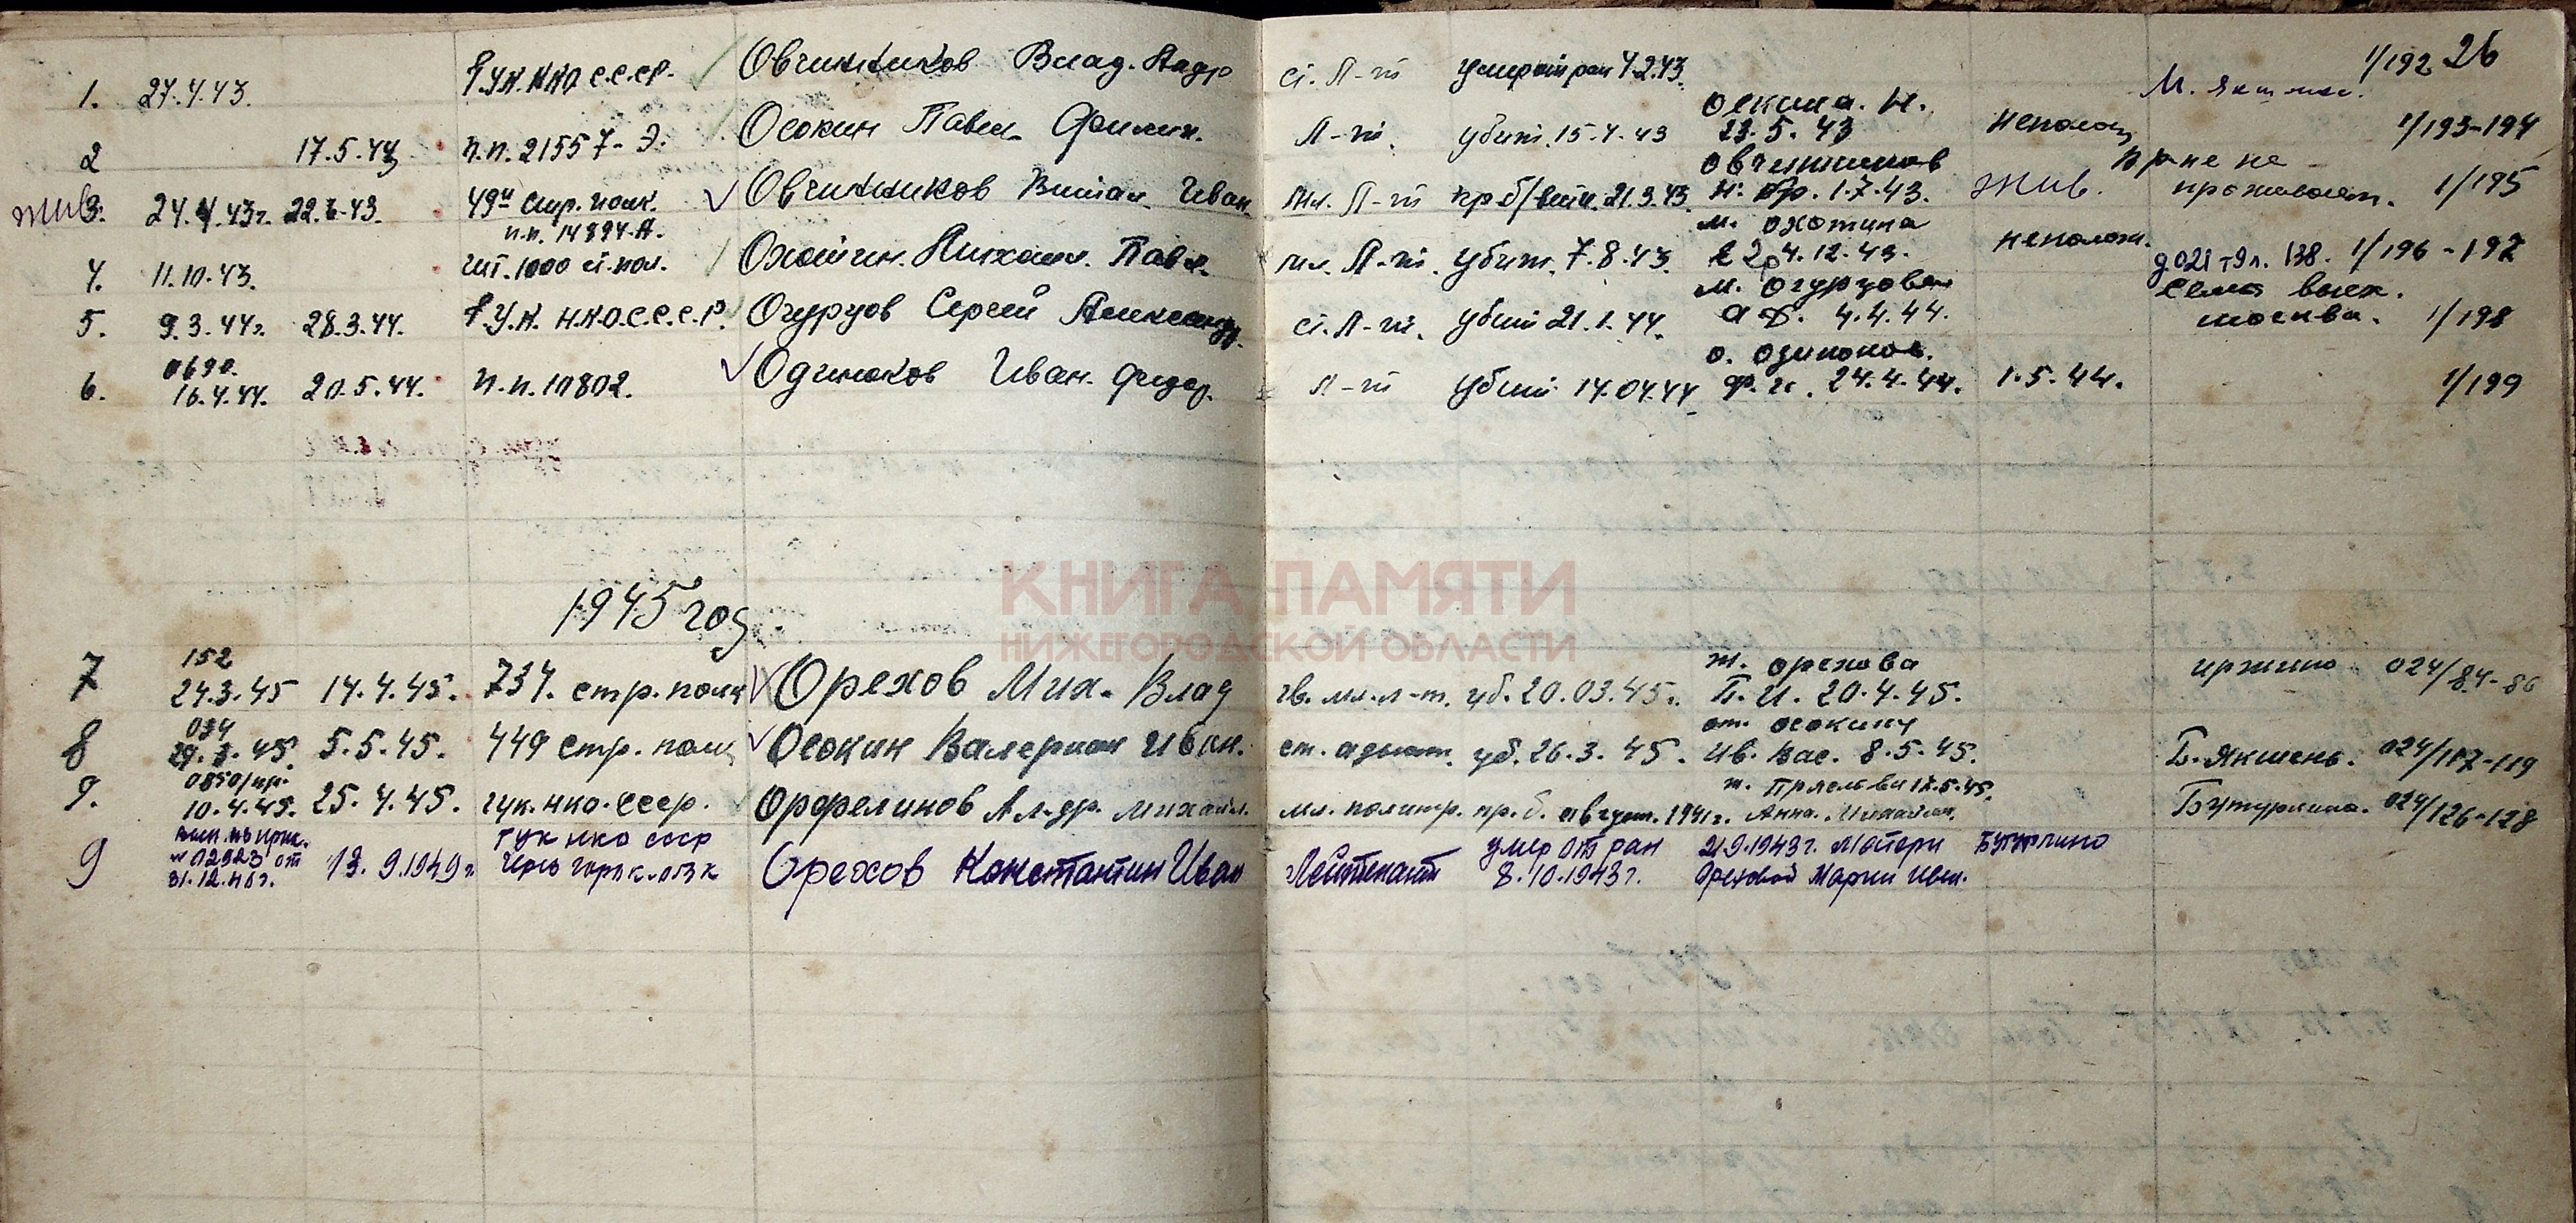 1/192 26
1. 27.4.43. Г.У.К. НКО С.С.С.Р. Овчинников Влад. Ст. Л-т умер от ран 4.2.43. М. Якшень.
2 17.5.43 п.п. 21557-Э. Осокин Павел Филип. Л-т. убит. 15.4.43 Оскина. Н. 23.5.43 неполож. 1/193-194
жив 3. 24.4.43г. 22.6.43. 49й стр. полк. п.п. 14894-А. Овчинников Виталий Иван. Мл. Л-т пр б/вести. 21.3.43. Овчинников И. 1.7.43. Жив. не проживает. 1/195
4. 11.10.43. шт. 1000 с. пол. Охотин. Михаил. Павл. мл. Л-т. убит. 7.8.43. м. Охотина 4.12.43. неполож. 1/196-197
5. 9.3.44г. 28.3.44. Г.У.К. Н.К.О.С.С.С.Р. Огурцов Сергей Александр. ст. Л-т. убит 21.1.44. м. Огурцовой 4.4.44. Семья Москва. 1/198
6. 0690. 16.4.44. 20.5.44. п.п. 10802. Одиноков Иван. Федор. Л-т убит 14.04.44 о. Одиноков. 24.4.44. 1.5.44. 1/199
1945 год.
КНИГА ПАМЯТИ
НИЖЕГОРОДСКОЙ ОБЛАСТИ
7 152 24.3.45 14.4.45. 734. стр. полк Орехов Мих. Влад гв. мл. л-т. уб. 20.03.45г. ж. Орехова П.И. 20.4.45. 024/84-86
8 034 29.3.45. 5.5.45. 449 стр. полк Осокин Валериан Иван. ст. адъют. уб. 26.3.45. от. Осокину Ив. Вас. 8.5.45. Б. Якшень. 024/117-119
9. 0850/пр. 10.4.45. 25.4.45. гук. нко. ссср. Орфелинов Ал-др. Михайл. мл. политр. пр. б. август. 1941г. Анна. Михайлов. 12.5.45. Бутурлино. 024/126-128
9 31.12.46г. 13.9.1949г. ГУК НКО СССР Орехов Константин Иван Лейтенант умер от ран 8.10.1943г. Матери Ореховой Марии Иван. Бутурлино